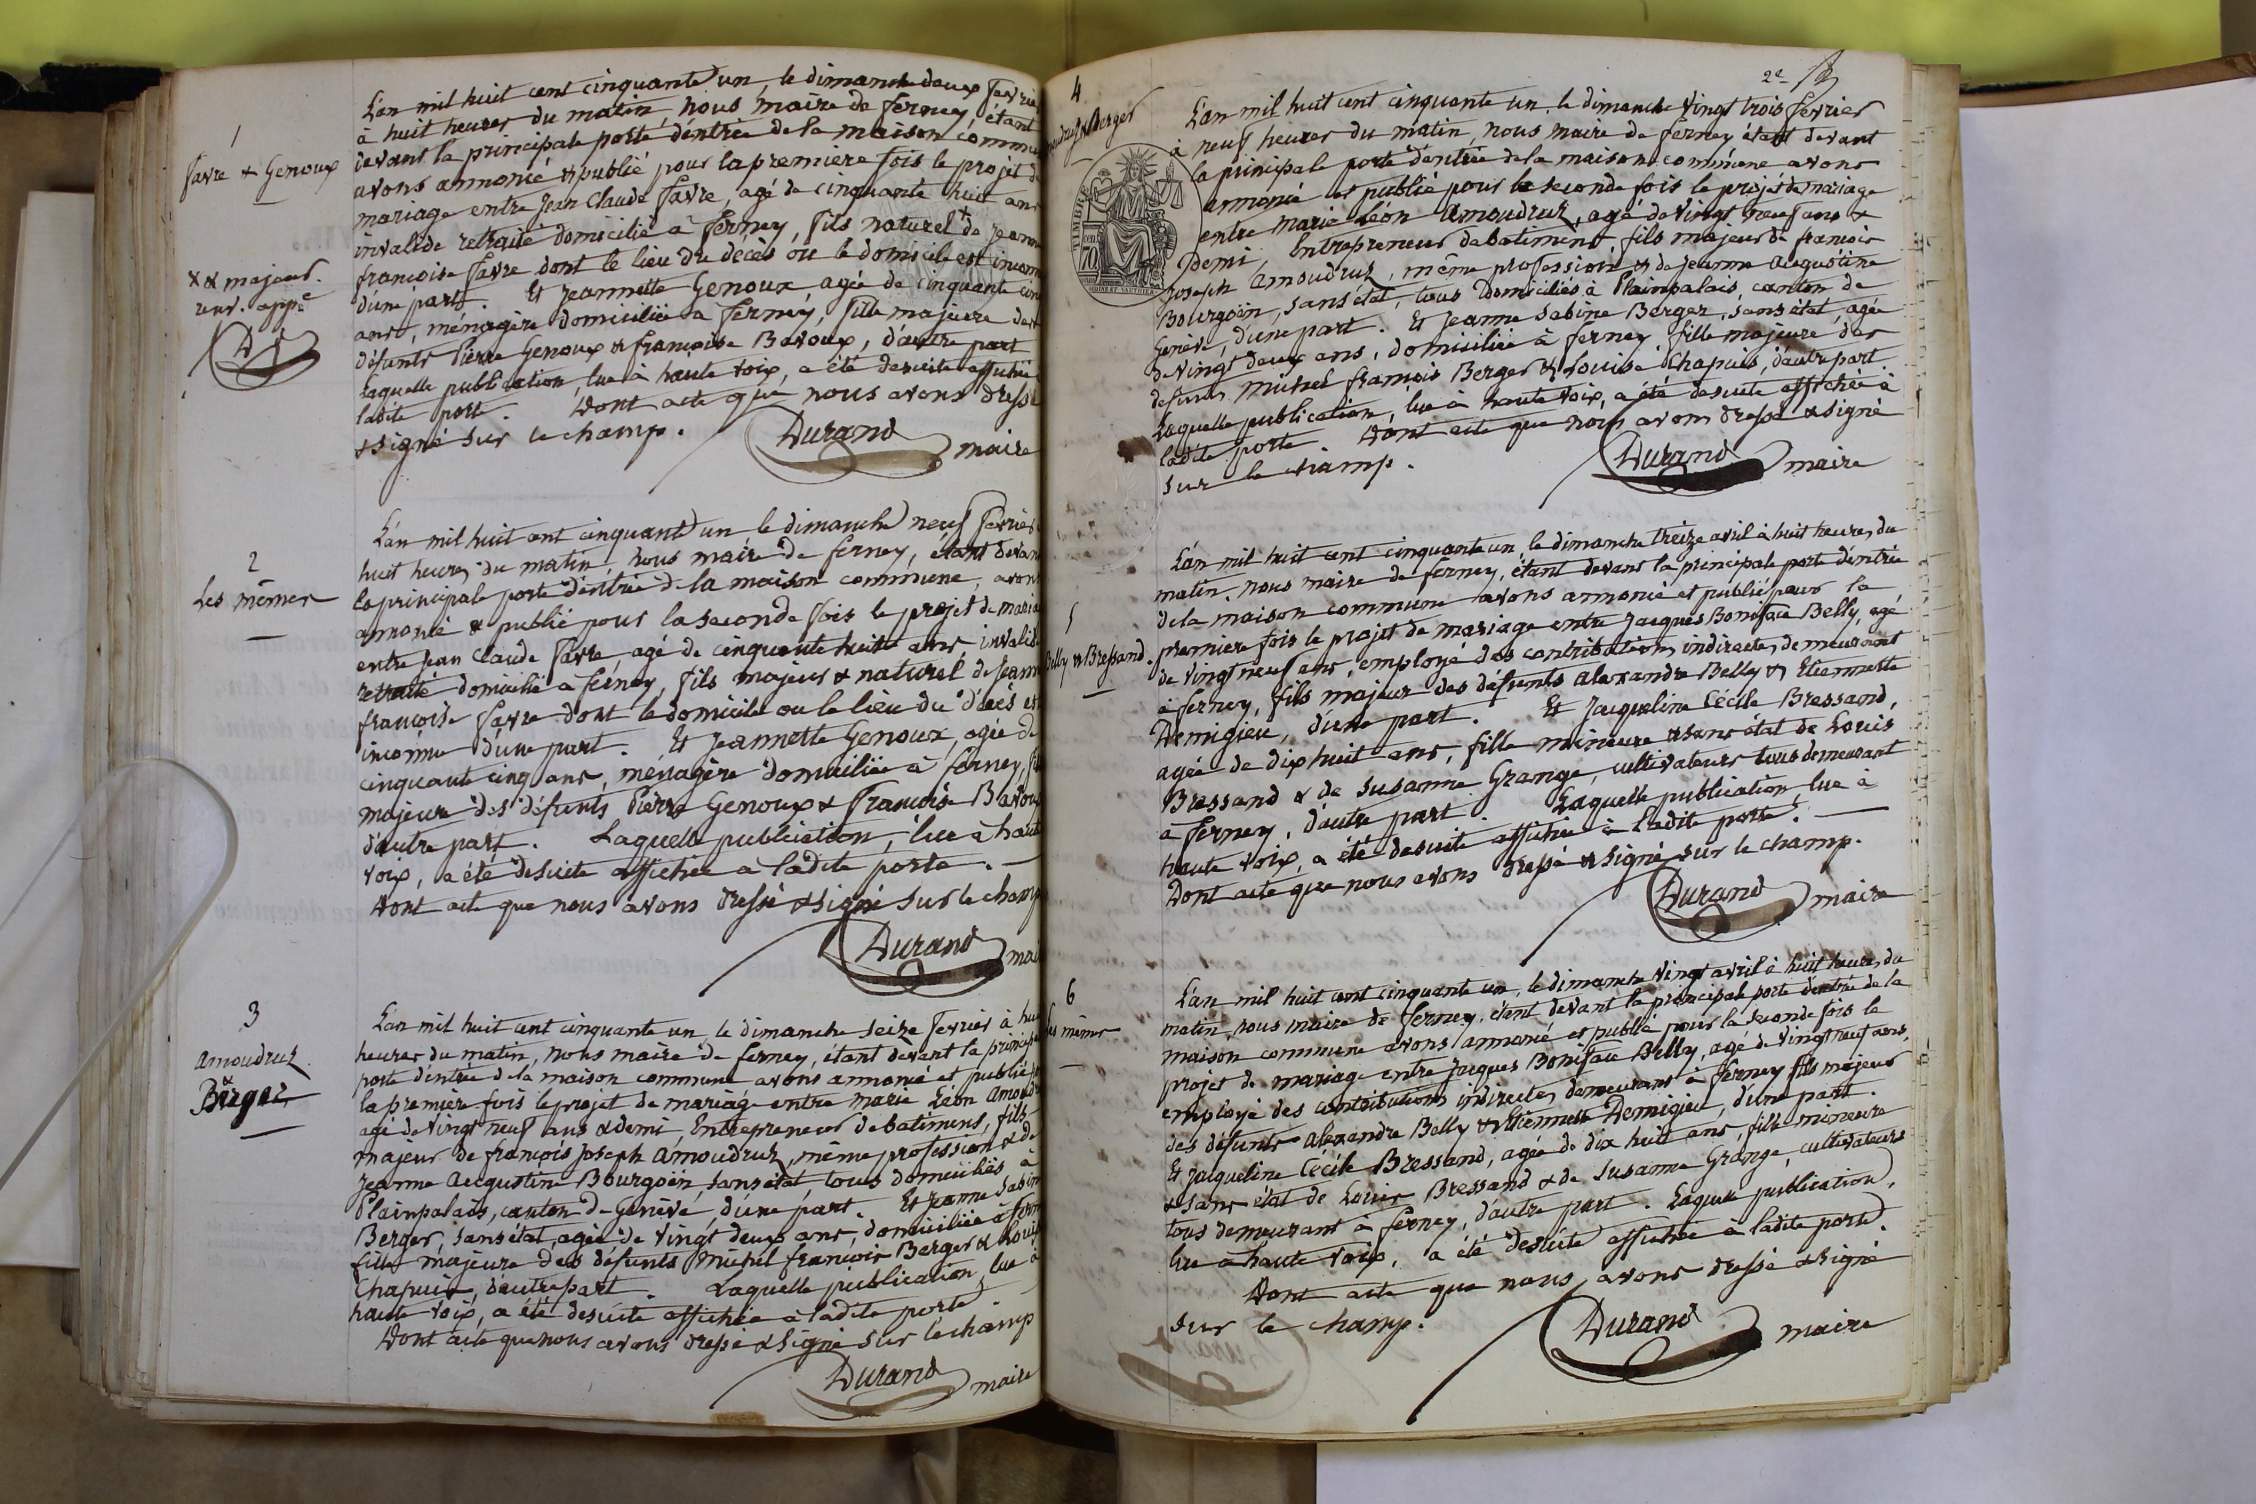 1
Favre & Genoux
L'an mil huit cent cinquante un, le dimanche deux février
à huit heures du matin, nous maire de ferney, étant
devant la principale porte d'entrée de la maison commu
avons annoncé & publié pour la premiere fois le projet d
mariage entre Jean Claude Favre, agé de cinquante huit ans
invalide retraité domicilié à ferney, fils naturel + de Jeann
françoise Favre dont le lieu du décès ou le domicile est inconn
d'une part. Et Jeannette Genoux agée de cinquante cinq
ans, ménagère domiciliée à ferney, fille majeure des
défunts Pierre Genoux & françoise Bavoux, d'autre part
Laquelle publication, lue à haute voix, a été desuite affichée
ladite porte. Dont acte que nous avons dressé
& signé sur le champ.
Durand maire
x & majeur.
renv. appé
2
Les mêmes
L'an mil huit cent cinquante un le dimanche neuf février
huit heures du matin, nous maire de ferney, étant devan
la principale porte d'entrée de la maison commune, avons
annoncé & publié pour la seconde fois le projet de maria
entre Jean Claude Favre, agé de cinquante huit ans, invalide
retraité domicilié à ferney, fils majeur & naturel de Jeann
françoise Favre dont le domicile ou le lieu du décès est
inconnu d'une part. Et Jeannette Genoux, agée de
cinquante cinq ans, ménagère domiciliée à ferney, fil
majeure des défunts Pierre Genoux & françoise Bavoux
d'autre part. Laquelle publication, lue à haute
voix, a été desuite affichée à ladite porte.
Dont acte que nous avons dressé & signé sur le champ
Durand mai
3
Amoudruz
&
Berger
L'an mil huit cent cinquante un, le dimanche seize fevrier à hui
heures du matin, nous maire de ferney, étant devant la principa
porte d'entrée de la maison commune avons annoncé et publié p
la premiere fois le projet de mariage entre Marie Léon Amoudr
agé de vingt neuf ans & demi, Entrepreneur de batiment, fils
majeur de françois Joseph Amoudruz, même profession & de
Jeanne Augustine Bourgoin, sans état, tous domiciliés à
Plainpalais, canton de Genève, d'une part. Et Jeanne Sabin
Berger, sans état, agée de vingt deux ans, domiciliée à fern
fille majeure des défunts Michel françois Berger & Louise
Chapuis, d'autre part. Laquelle publication, lue à
haute voix, a été desuite affichée à ladite porte.
Dont acte que nous avons dressé & signé sur le champ
Durand maire
2e
4
oudruz & Berger
L'an mil huit cent cinquante un, le dimanche vingt trois fevrier
à neuf heures du matin, nous maire de ferney étant devant
la principale porte d'entrée de la maison commune avons
annoncé et publié pour la seconde fois le projet de mariage
entre Marie Léon Amoudruz, agé de vingt neuf ans &
demi, Entrepreneur de batiment, fils majeur de françois
Joseph Amoudruz, même profession & de Jeanne Augustine
Bourgoin, sans état, tous domiciliés à Plainpalais, canton de
Genève, d'une part. Et Jeanne Sabine Berger, sans état, agée
de vingt deux ans, domiciliée à ferney fille majeure des
defunts Michel françois Berger & Louise Chapuis, d'autre part
Laquelle publication, lue à haute voix, a été desuite affichée à
ladite porte. Dont acte que nous avons dressé & signé
sur le champ.
Durand maire
TIMBRE
70
5
Belly & Bressand.
L'an mil huit cent cinquante un, le dimanche treize avril à huit heures du
matin, nous maire de ferney, étant devant la principale porte d'entrée
de la maison commune avons annoncé et publié pour la
premiere fois le projet de mariage entre Jacques Boniface Belly, agé
de vingt neuf ans, employé des contributions indirectes, demeurant
à ferney, fils majeur des défunts Alexandre Belly & Etiennette
Demigieu, d'une part. Et Jacqueline Cécile Bressand,
agée de dix huit ans, fille mineure & sans état de Louis
Bressand & de Susanne Grange, cultivateurs tous demeurant
à Ferney, d'autre part. Laquelle publication, lue à
haute voix, a été desuite affichée à ladite porte.
Dont acte que nous avons dressé & signé sur le champ.
Durand maire
6
Les mêmes
L'an mil huit cent cinquante un, le dimanche vingt avril à huit heures du
matin, nous maire de ferney, étant devant la principale porte d'entrée de la
maison commune avons annoncé et publié pour la seconde fois le
projet de mariage entre Jacques Boniface Belly, agé de vingt neuf ans,
employé des contributions indirectes, demeurant à ferney fils majeur
des défunts Alexandre Belly & Etiennette Demigieu, d'une part.
Et Jacqueline Cécile Bressand, agée de dix huit ans, fille mineure
& sans état de Louis Bressand & de Susanne Grange, cultivateurs
tous demeurant à ferney, d'autre part. Laquelle publication,
lue à haute voix, a été desuite affichée à ladite porte.
Dont acte que nous avons dressé & signé
sur le champ.
Durand maire